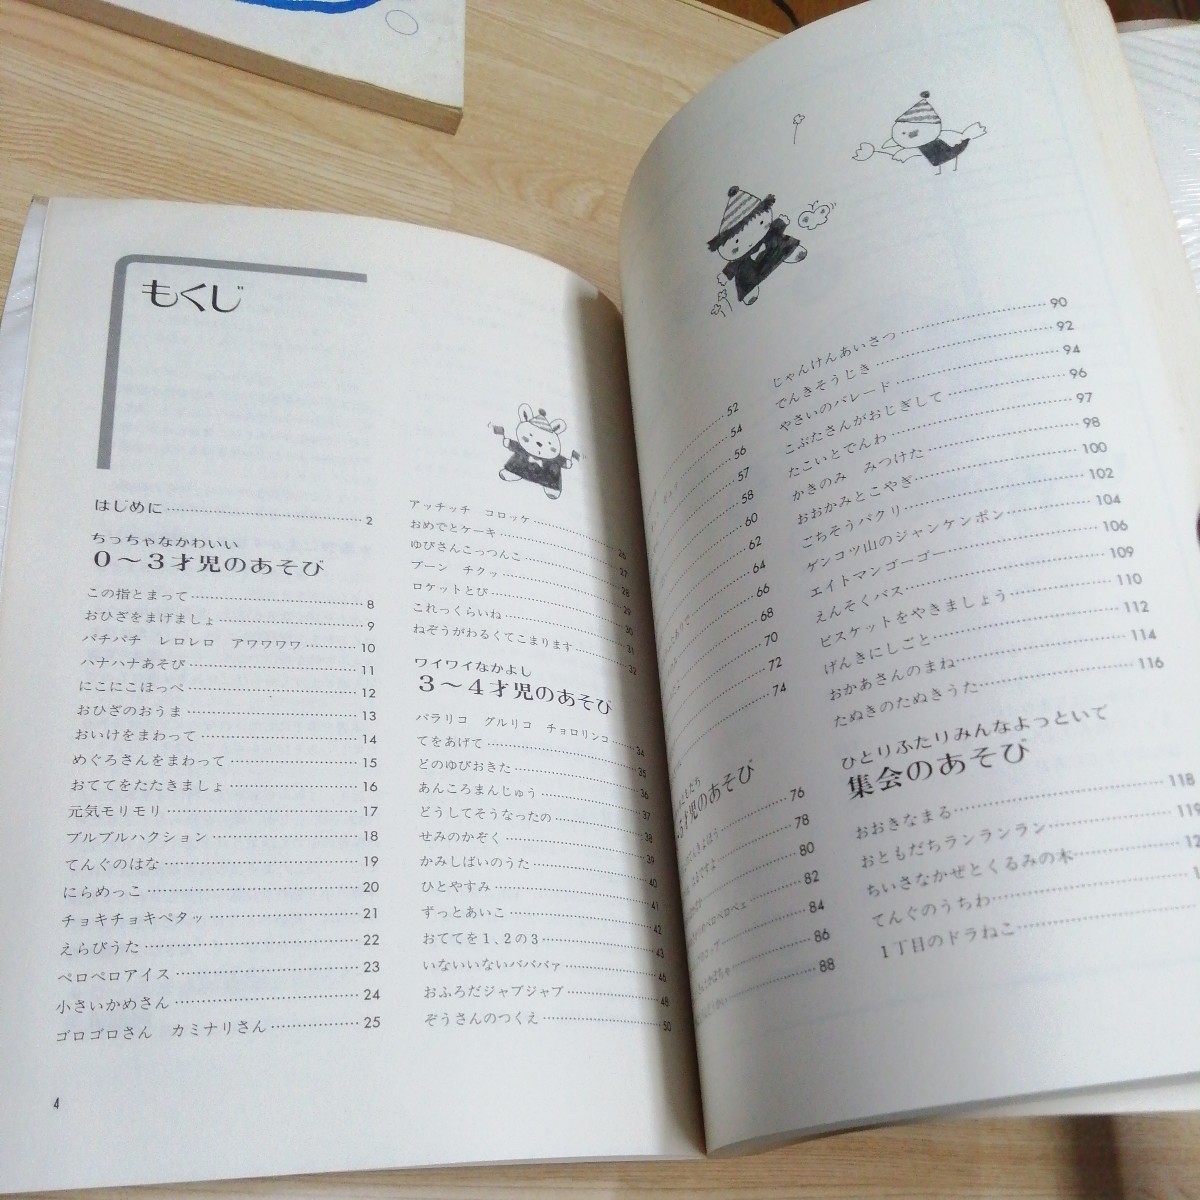 もくじ
はじめに 2
ちっちゃなかわいい
0〜3才児のあそび
この指とまって 8
おひざをまげましょ 9
パチパチ レロレロ アワワワワ 10
ハナハナあそび 11
にこにこほっぺ 12
おひざのおうま 13
おいけをまわって 14
めぐろさんをまわって 15
おててをたたきましょ 16
元気モリモリ 17
ブルブルハクション 18
てんぐのはな 19
にらめっこ 20
チョキチョキペタッ 21
えらびうた 22
ペロペロアイス 23
小さいかめさん 24
ゴロゴロさん カミナリさん 25
4
アッチッチ コロッケ 26
おめでとケーキ 27
ゆびさんこっつんこ 28
ブーン チクッ 29
ロケットとび 30
これっくらいね 31
ねぞうがわるくてこまります 32
ワイワイなかよし
3〜4才児のあそび
バラリコ グルリコ チョロリンコ 34
てをあげて 35
どのゆびおきた 36
あんころまんじゅう 37
どうしてそうなったの 38
せみのかぞく 39
かみしばいのうた 40
ひとやすみ 41
ずっとあいこ 42
おててを1、2の3 43
いないいないバババァ 46
おふろだジャブジャブ 48
ぞうさんのつくえ 50
52
54
56
57
58
60
62
64
66
68
70
72
74
才児のあそび
76
78
80
82
84
86
88
じゃんけんあいさつ 90
でんきそうじき 92
やさいのパレード 94
こぶたさんがおじぎして 96
たこいとでんわ 97
かきのみ みつけた 98
おおかみとこやぎ 100
ごちそうパクリ 102
ゲンコツ山のジャンケンポン 104
エイトマンゴーゴー 106
えんそくバス 109
ビスケットをやきましょう 110
げんきにしごと 112
おかあさんのまね 114
たぬきのたぬきうた 116
ひとりふたりみんなよっといで
集会のあそび
おおきなまる 118
おともだちランランラン 119
ちいさなかぜとくるみの木
てんぐのうちわ
1丁目のドラねこ